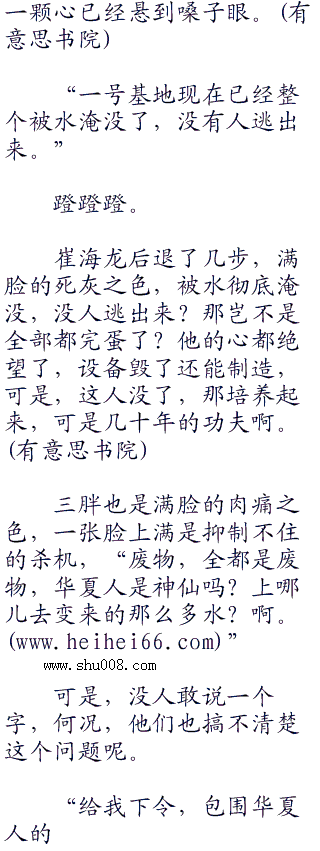 一颗心已经悬到嗓子眼。(有
意思书院)
“一号基地现在已经整
个被水淹没了，没有人逃出
来。”
蹬蹬蹬。
崔海龙后退了几步，满
脸的死灰之色，被水彻底淹
没，没人逃出来？那岂不是
全部都完蛋了？他的心都绝
望了，设备毁了还能制造，
可是，这人没了，那培养起
来，可是几十年的功夫啊。
(有意思书院)
三胖也是满脸的肉痛之
色，一张脸上满是抑制不住
的杀机，“废物，全都是废
物，华夏人是神仙吗？上哪
儿去变来的那么多水？啊。
(www.heihei66.com)”
www.shu008.com
可是，没人敢说一个
字，何况，他们也搞不清楚
这个问题呢。
“给我下令，包围华夏
人的